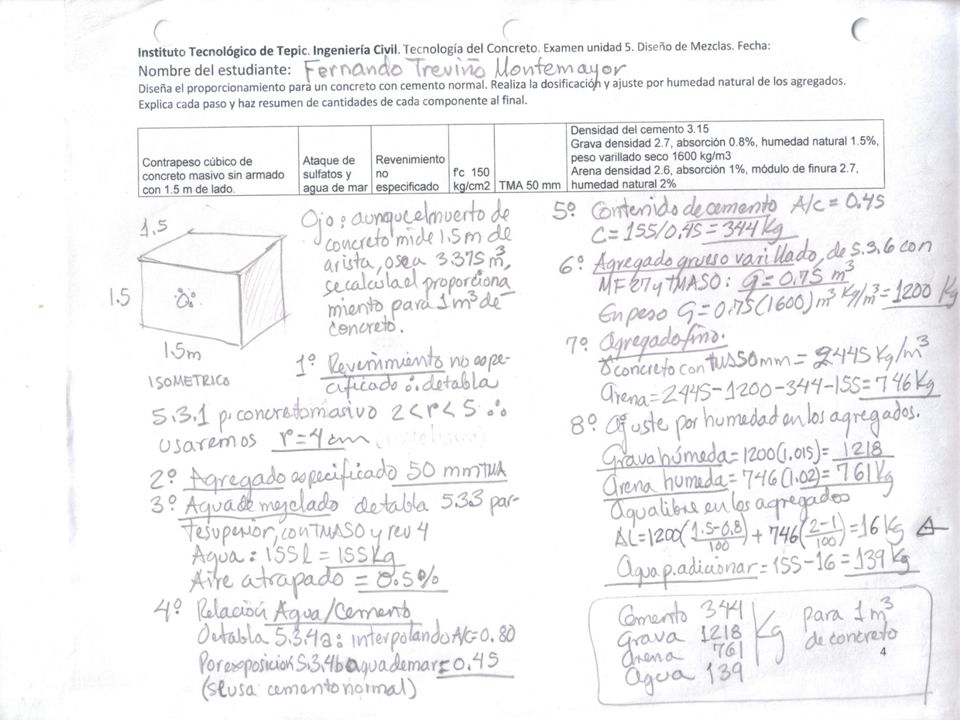 Instituto Tecnológico de Tepic. Ingeniería Civil. Tecnología del Concreto. Examen unidad 5. Diseño de Mezclas. Fecha:
Nombre del estudiante: Fernando Treviño Montemayor
Diseña el proporcionamiento para un concreto con cemento normal. Realiza la dosificación y ajuste por humedad natural de los agregados.
Explica cada paso y haz resumen de cantidades de cada componente al final.
Contrapeso cúbico de
concreto masivo sin armado
con 1.5 m de lado.
Ataque de
sulfatos y
agua de mar
Revenimiento
no
especificado
f'c 150
kg/cm2
TMA 50 mm
Densidad del cemento 3.15
Grava densidad 2.7, absorción 0.8%, humedad natural 1.5%,
peso varillado seco 1600 kg/m3
Arena densidad 2.6, absorción 1%, módulo de finura 2.7,
humedad natural 2%
1.5
1.5
1.5m
ISOMETRICO
Ojo: aunque el muerto de
concreto mide 1.5 m de
arista, o sea 3.375 m³,
se calcula el proporciona
miento para 1 m³ de
concreto.
1º Revenimiento no espe-
cificado ∴ de tabla
5.3.1 p. concreto masivo 2<r<5 ∴
usaremos r=4 cm
2º Agregado especificado 50 mm TMA
3º Agua de mezclado de tabla 5.3.3 par-
te superior, con TMA50 y rev 4
Agua: 155 l = 155 Kg
Aire atrapado = 0.5%
4º Relación Agua/Cemento
De tabla 5.3.4a: interpolando A/C=0.80
Por exposición 5.3.4b agua de mar=0.45
(se usa cemento normal)
5º Contenido de cemento A/c = 0.45
C=155/0.45 = 344 Kg
6º Agregado grueso varillado, de 5.3.6 con
MF 2.7 y TMA50: g=0.75 m³
En peso G=0.75(1600) m³ Kg/m³ = 1200 Kg
7º Agregado fino.
γ concreto con TMA 50 mm = 2445 Kg/m³
Arena=2445-1200-344-155=746 Kg
8º Ajuste por humedad en los agregados.
Grava húmeda=1200(1.015)= 1218
Arena humeda=746(1.02)=761 Kg
Agua libre en los agregados
AL=1200(1.5-0.8/100)+746(2-1/100)=16 Kg
Agua p. adicionar=155-16=139 Kg
Cemento 344
Grava 1218
Arena 761
Agua 139
Kg
para 1 m³
de concreto
4